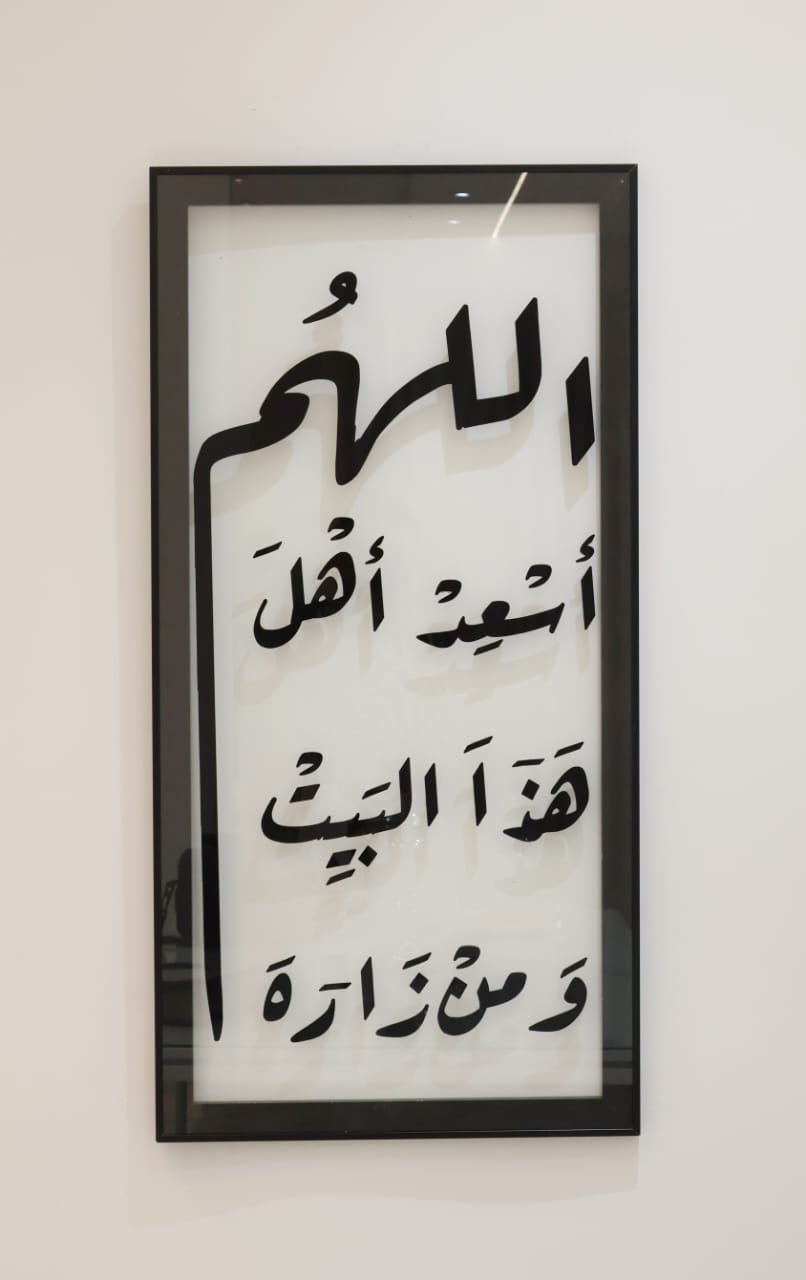 اللهُم
أسْعِدْ أهْلَ
هَذَا البَيِتْ
وَ منْ زَارَهَ